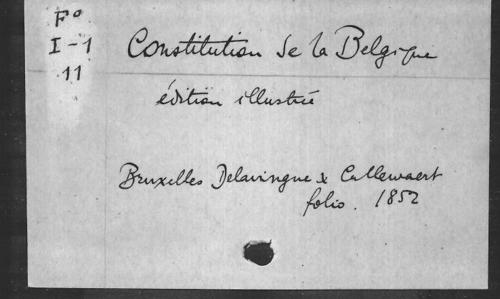 Fº
I-1
11
Constitution de la Belgique
édition illustrée
Bruxelles Delavingne & Callewaert
folio. 1852